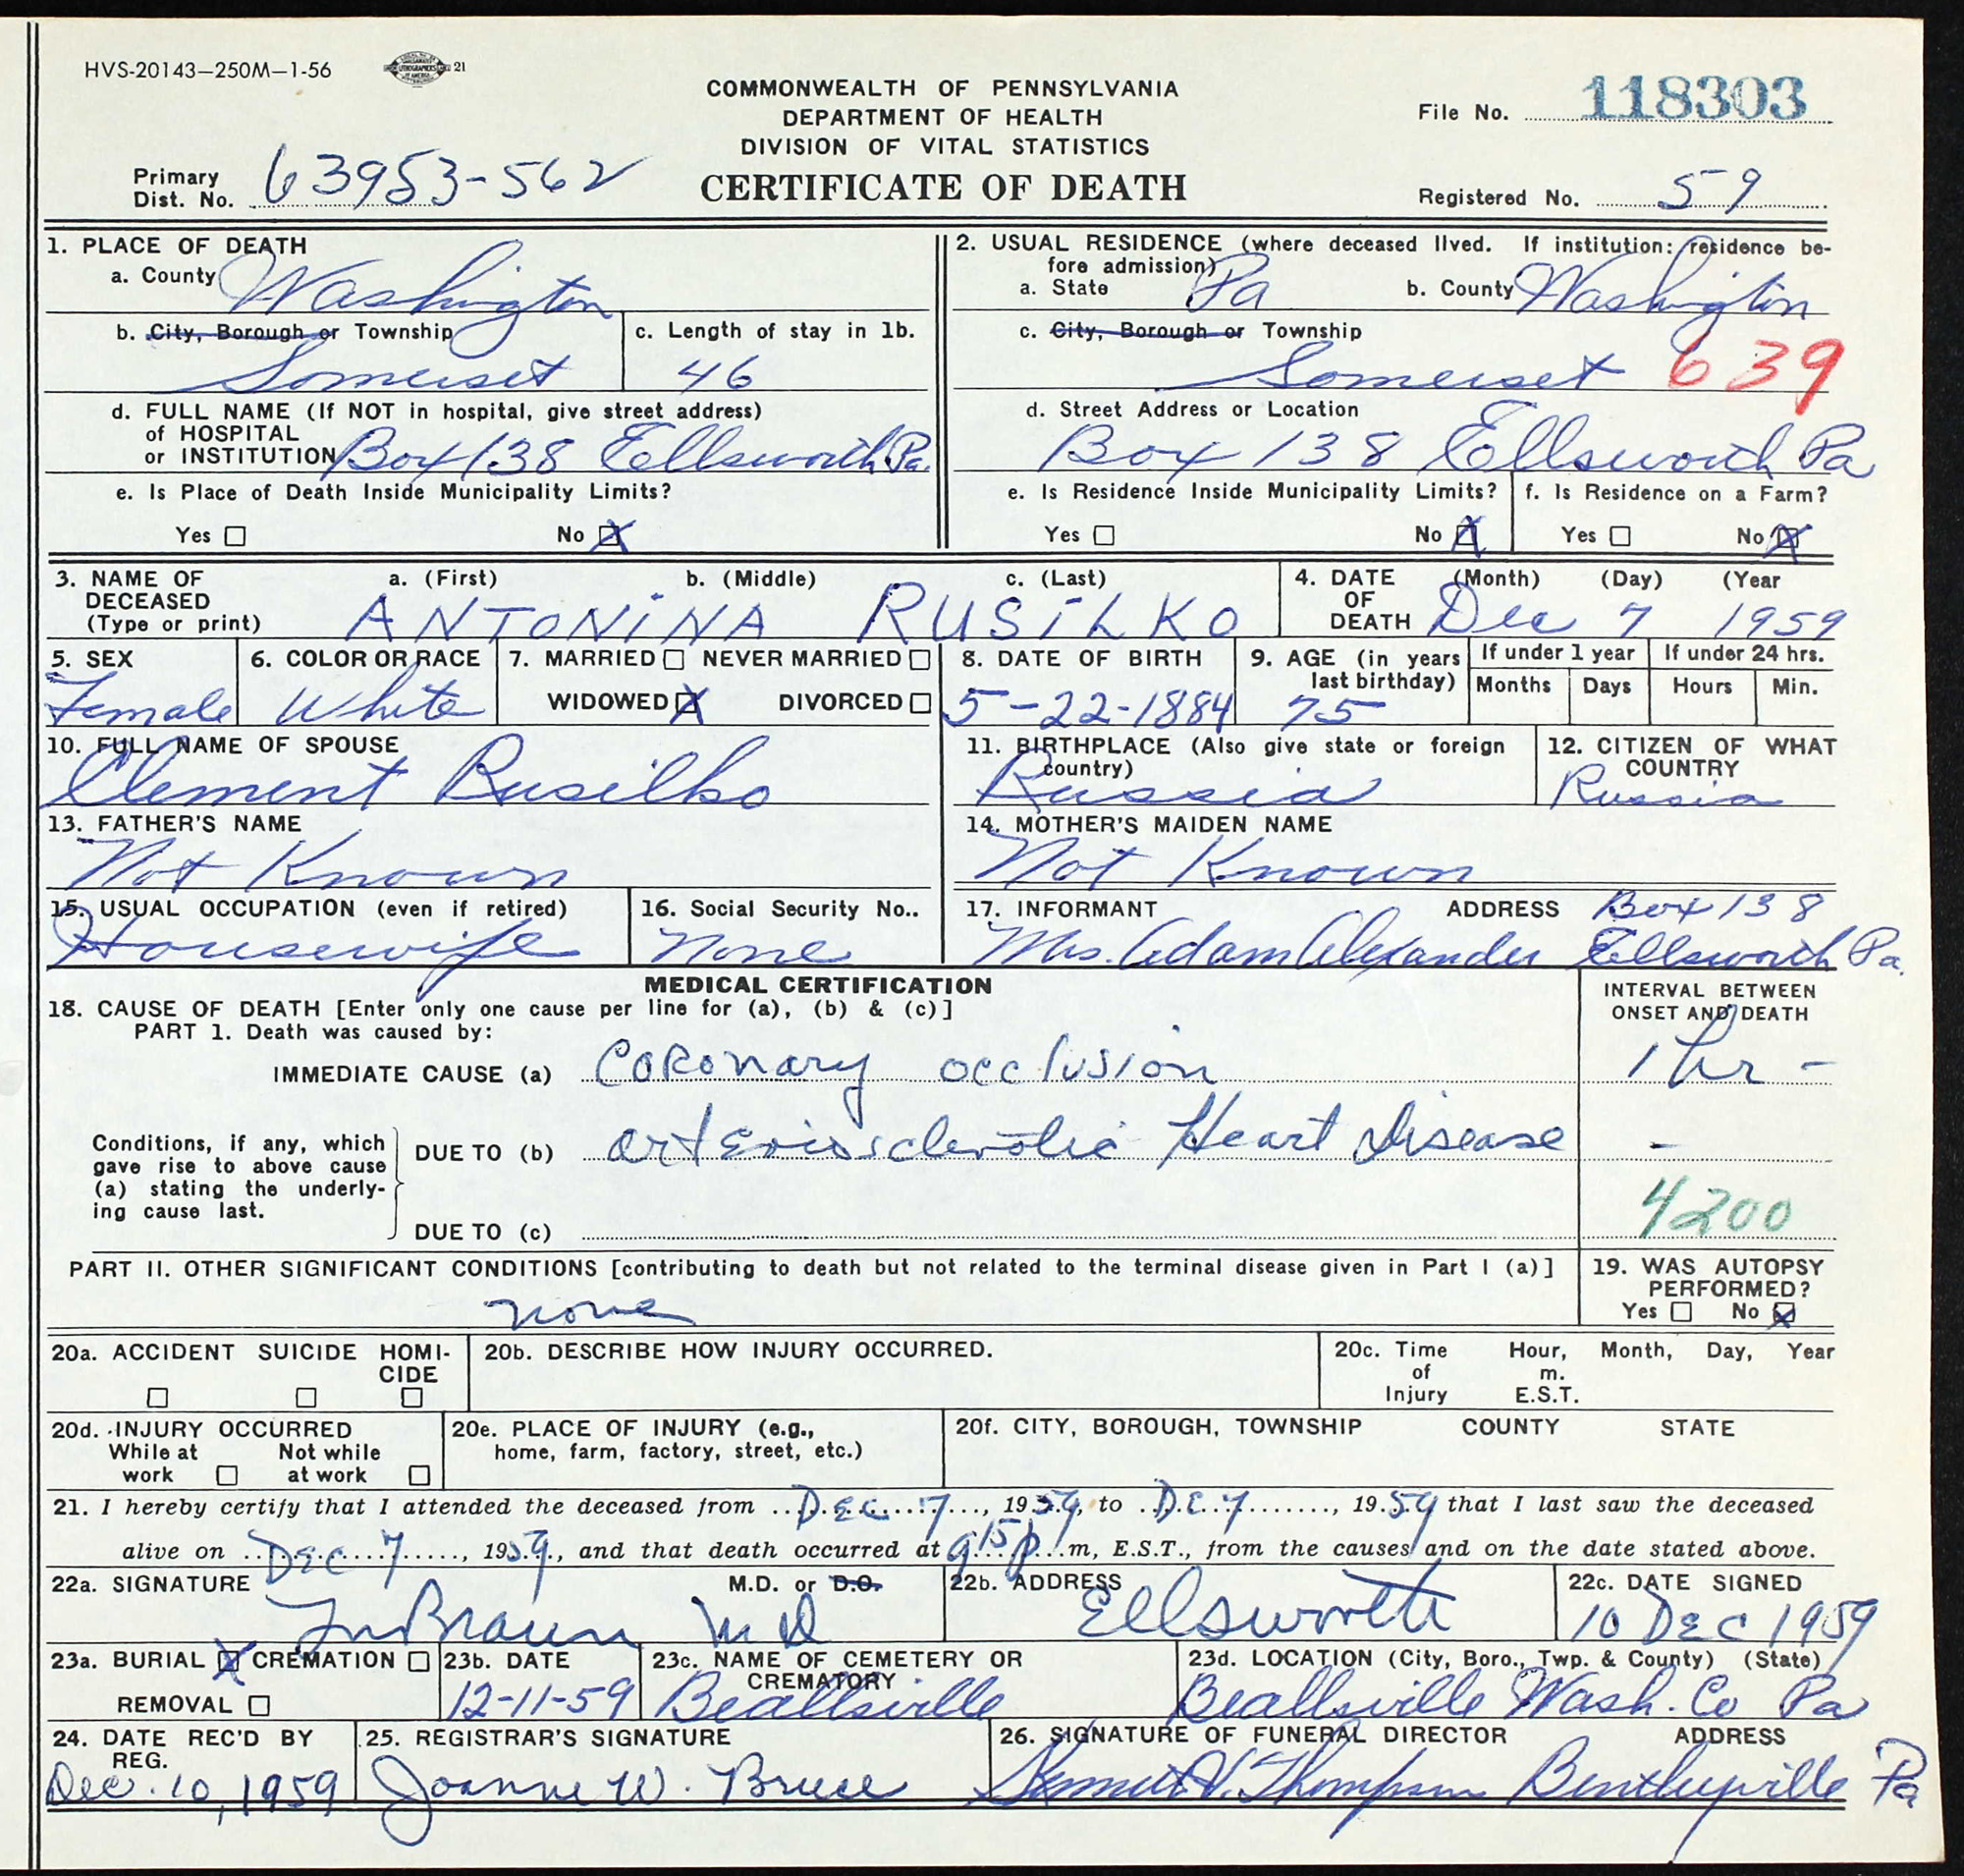 HVS-20143—250M—1-56 21
COMMONWEALTH OF PENNSYLVANIA
DEPARTMENT OF HEALTH
DIVISION OF VITAL STATISTICS
CERTIFICATE OF DEATH
File No. 118303
Primary
Dist. No. 63953-562
Registered No. 59
1. PLACE OF DEATH
a. County Washington
b. City, Borough or Township
Somerset
c. Length of stay in 1b.
46
d. FULL NAME (If NOT in hospital, give street address)
of HOSPITAL
or INSTITUTION Box 138 Ellsworth Pa.
e. Is Place of Death Inside Municipality Limits?
Yes ☐ No ☒
2. USUAL RESIDENCE (where deceased lived. If institution: residence be-
fore admission)
a. State Pa b. County Washington
c. City, Borough or Township
Somerset 639
d. Street Address or Location
Box 138 Ellsworth Pa
e. Is Residence Inside Municipality Limits?
Yes ☐ No ☒
f. Is Residence on a Farm?
Yes ☐ No ☒
3. NAME OF DECEASED (Type or print)
a. (First) b. (Middle) c. (Last)
ANTONINA RUSILKO
4. DATE OF DEATH (Month) (Day) (Year
Dec 7 1959
5. SEX
Female
6. COLOR OR RACE
White
7. MARRIED ☐ NEVER MARRIED ☐
WIDOWED ☒ DIVORCED ☐
8. DATE OF BIRTH
5-22-1884
9. AGE (in years
last birthday)
75
If under 1 year
Months Days
If under 24 hrs.
Hours Min.
10. FULL NAME OF SPOUSE
Clement Rusilko
11. BIRTHPLACE (Also give state or foreign
country)
Russia
12. CITIZEN OF WHAT
COUNTRY
Russia
13. FATHER'S NAME
Not Known
14. MOTHER'S MAIDEN NAME
Not Known
15. USUAL OCCUPATION (even if retired)
Housewife
16. Social Security No..
None
17. INFORMANT ADDRESS Box 138
Mrs. Adam Alexander Ellsworth Pa.
MEDICAL CERTIFICATION
18. CAUSE OF DEATH [Enter only one cause per line for (a), (b) & (c)]
PART 1. Death was caused by:
INTERVAL BETWEEN
ONSET AND DEATH
IMMEDIATE CAUSE (a) Coronary occlusion 1 hr -
Conditions, if any, which
gave rise to above cause
(a) stating the underly-
ing cause last.
DUE TO (b) arteriosclerotic Heart Disease -
4200
DUE TO (c)
PART II. OTHER SIGNIFICANT CONDITIONS [contributing to death but not related to the terminal disease given in Part I (a)]
none
19. WAS AUTOPSY
PERFORMED?
Yes ☐ No ☒
20a. ACCIDENT SUICIDE HOMI-
CIDE
☐ ☐ ☐
20b. DESCRIBE HOW INJURY OCCURRED.
20c. Time of Injury Hour, m. E.S.T. Month, Day, Year
20d. INJURY OCCURRED
While at work ☐ Not while at work ☐
20e. PLACE OF INJURY (e.g.,
home, farm, factory, street, etc.)
20f. CITY, BOROUGH, TOWNSHIP COUNTY STATE
21. I hereby certify that I attended the deceased from Dec 7, 1959, to Dec 7, 1959 that I last saw the deceased
alive on Dec 7, 1959, and that death occurred at 915 p.m, E.S.T., from the causes and on the date stated above.
22a. SIGNATURE M.D. or D.O.
Braun MD
22b. ADDRESS
Ellsworth
22c. DATE SIGNED
10 Dec 1959
23a. BURIAL ☒ CREMATION ☐
REMOVAL ☐
23b. DATE
12-11-59
23c. NAME OF CEMETERY OR
CREMATORY
Beallsville
23d. LOCATION (City, Boro., Twp. & County) (State)
Beallsville Wash. Co Pa
24. DATE REC'D BY
REG.
Dec. 10, 1959
25. REGISTRAR'S SIGNATURE
Joanne W. Bruce
26. SIGNATURE OF FUNERAL DIRECTOR ADDRESS
V. Thompson Bentleyville Pa